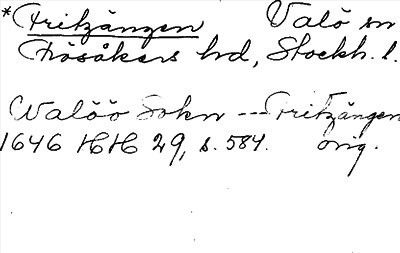 *Fritzängen Valö sn
Frösåkers hd, Stockh. l.
Walöö Sokn --- Fritzängen
1646 HH 29, s. 584. orig.